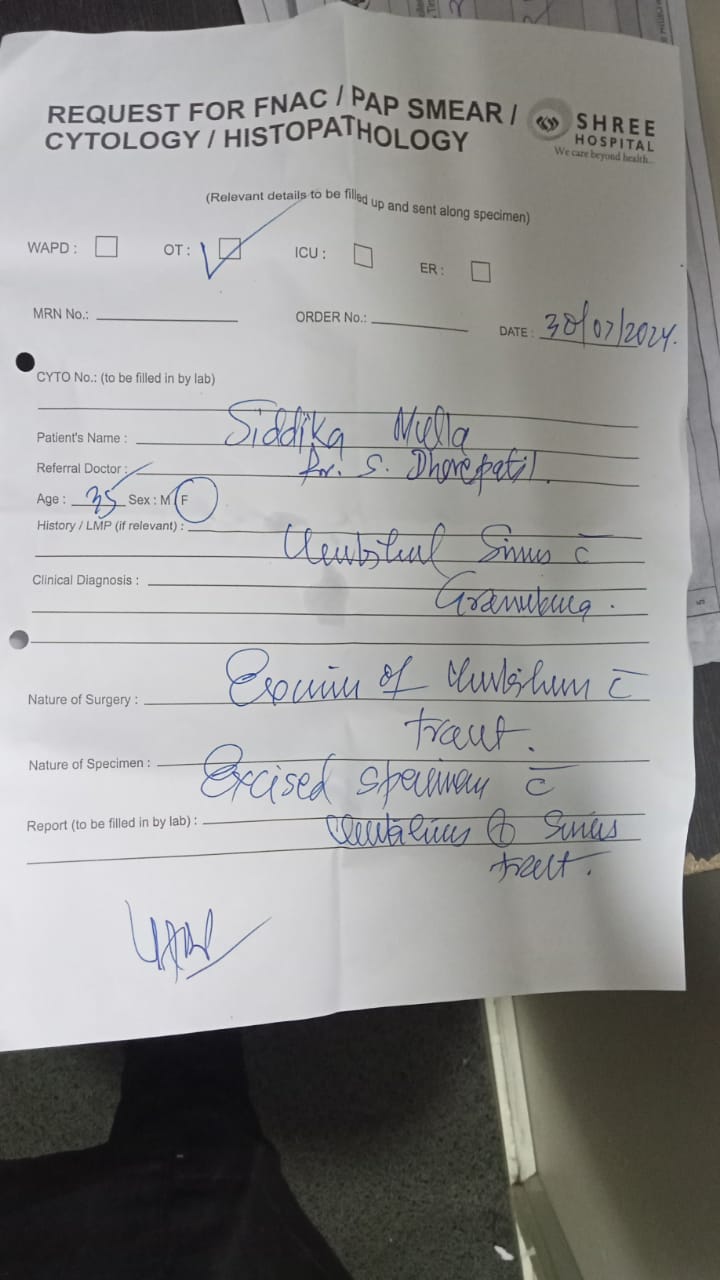 REQUEST FOR FNAC / PAP SMEAR /
CYTOLOGY / HISTOPATHOLOGY
SHREE
HOSPITAL
We care beyond health...
(Relevant details to be filled up and sent along specimen)
WAPD : OT : ICU : ER :
MRN No.: ORDER No.: DATE : 30/07/2024.
CYTO No.: (to be filled in by lab)
Patient's Name : Siddika Mulla
Referral Doctor : Dr. S. Dhorepatil.
Age : 35 Sex : M F
History / LMP (if relevant) :
Sinus c̄
Clinical Diagnosis :
Nature of Surgery : of c̄
tract.
Nature of Specimen : Excised specimen c̄
Report (to be filled in by lab) : Sinus
tract.